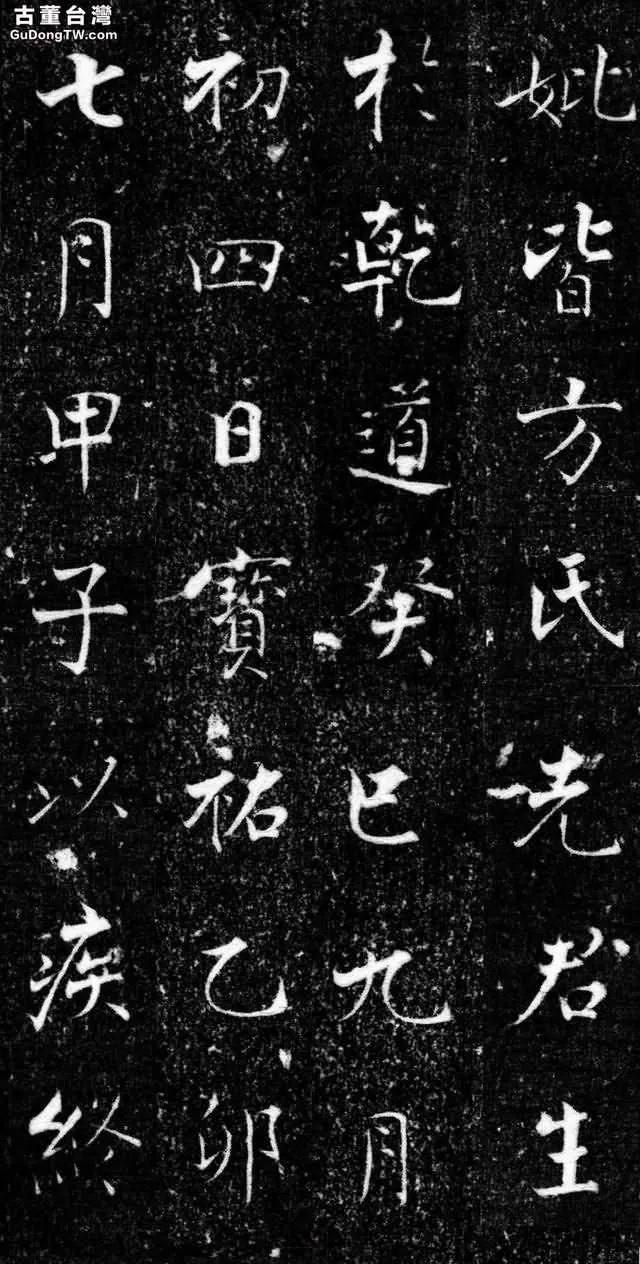 古董台灣
GuDongTW.com
妣皆方氏先君生
於乾道癸巳九月
初四日寶祐乙卯
七月甲子以疾終